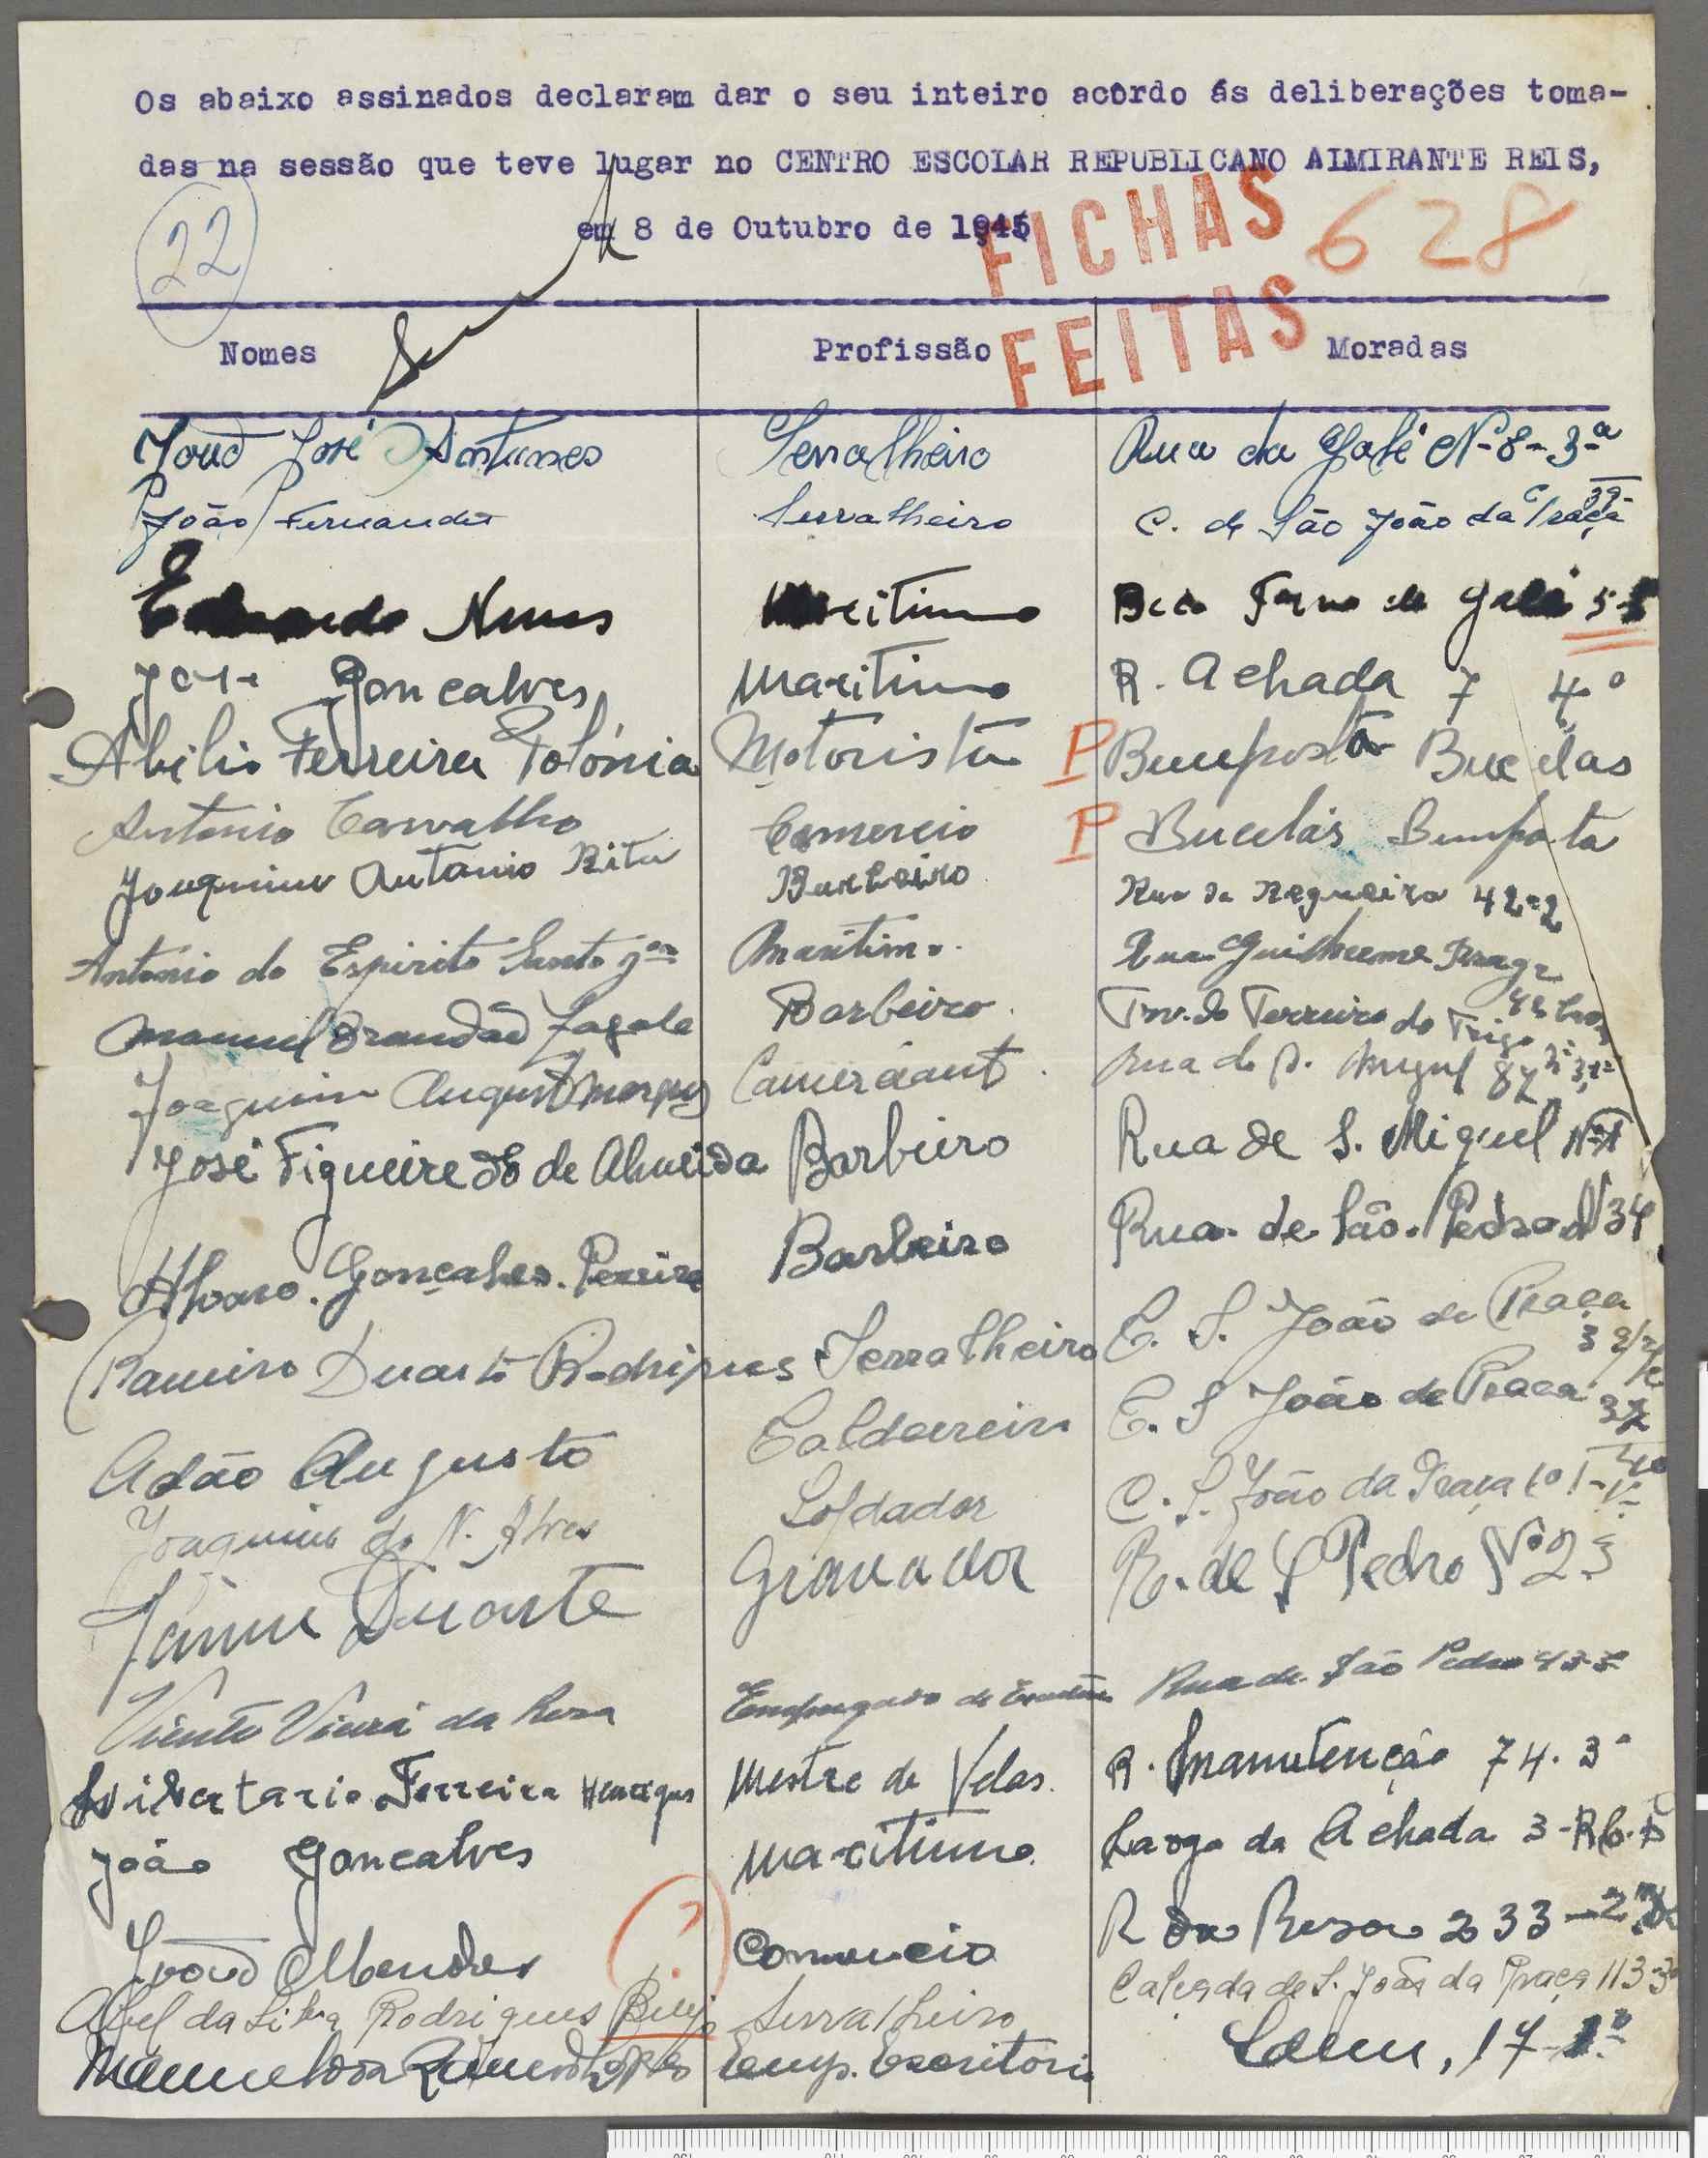 Os abaixo assinados declaram dar o seu inteiro acôrdo ás deliberações toma-
das na sessão que teve lugar no CENTRO ESCOLAR REPUBLICANO ALMIRANTE REIS,
em 8 de Outubro de 1945
22
FICHAS 628
FEITAS
Nomes Profissão Moradas
José Antunes Serralheiro Rua da Galé Nº 8-3º
João Fernandes Serralheiro C. de São João da Praça 39
Eduardo Nunes Maritimo Beco Forno da Galé 5
José Goncalves Maritimo R. Achada 7 4º
Abilio Ferreira Polónia Motorista P Bemposta Bucelas
Antonio Carvalho Comercio P Bucelas Bemposta
Antonio Rita Barbeiro Rua da Regueira 42-2
Antonio do Espirito Santo Jor Maritimo Rua Guilherme Braga
Manuel Brandão Barbeiro Trv. do Terreiro do Trigo
Joaquim Augusto Comerciante Rua de S. Miguel 87
José Figueiredo de Almeida Barbeiro Rua de S. Miguel
Alvaro Gonçalves Pereira Barbeiro Rua de São Pedro Nº 34
Ramiro Duarte Rodrigues Serralheiro C. S. João da Praça
Adão Augusto Caldeireiro C. S João da Praça
Joaquim do N. Alves Soldador C. S. João da Praça
Jaime Duarte Gravador R. de S Pedro Nº 23
Vicente Vieira da Rosa Empregado de Rua de São Pedro
Ferreira Henriques Mestre de Velas R. Manutenção 74. 3º
João Goncalves Maritimo Largo da Achada 3-R/c
? Mendes Comercio R da Rosa 233-2º
Abel da Silva Rodrigues Serralheiro Calçada de S. João da Praça 113-3º
Lopes Emp. Escritorio Idem, 17-1º